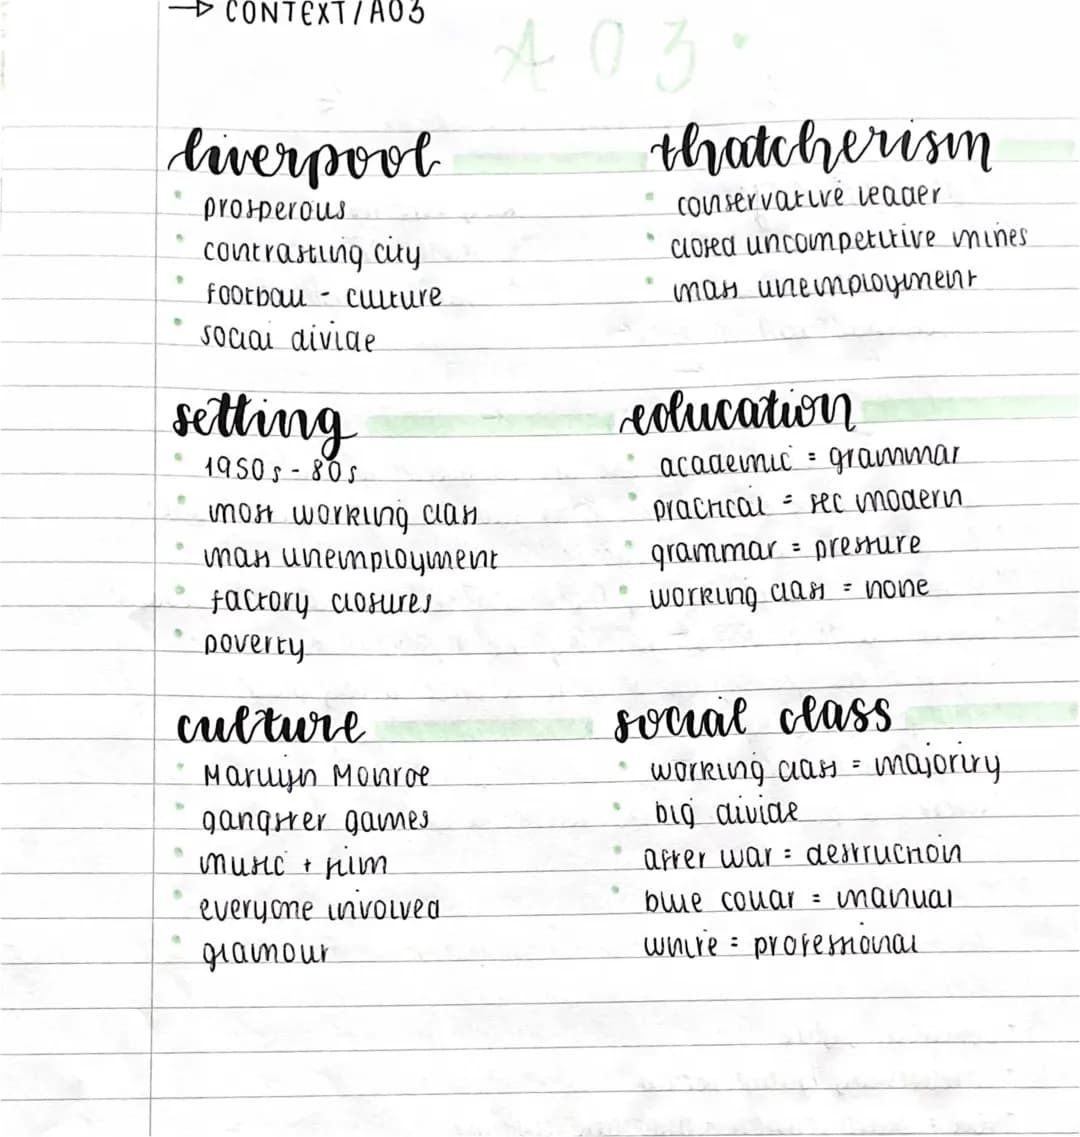 → CONTEXT/A03
A03.
liverpool
• prosperous
• contrasting city
• football - culture
• social divide
thatcherism
• conservative leader
• closed uncompetitive mines
• mass unemployment
setting
• 1950s - 80s
• most working class
• mass unemployment
• factory closures
• poverty
education
• academic = grammar
• practical = sec modern
• grammar = pressure
• working class = none
culture
• Marilyn Monroe
• gangster games
• music + film
• everyone involved
• glamour
social class
• working class = majority
• big divide
• after war = destruction
• blue collar = manual
white = professional